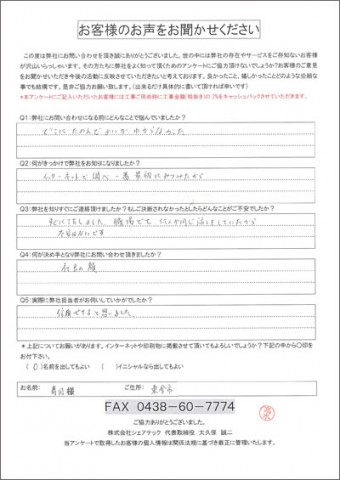 お客様のお声をお聞かせください
この度は弊社にお問い合わせを頂き誠にありがとうございました。世の中には弊社の存在やサービスをご存知ないお客様
が沢山いらっしゃいます。その方たちに弊社をよく知って頂くためのアンケートにご協力頂けないでしょうか?お客様のご意見
をお聞かせいただき今後の活動に反映させていただきたいと考えております。良かったこと、嬉しかったことどのような些細な
事でも結構です。是非ご協力お願い致します。(出来るだけ具体的に書いて頂ければ幸いです)
Q1:弊社にお問い合わせになる前にどんなことで悩んでいましたか?
どこにたのんでよいかわからなかった
Q2:何がきっかけで弊社をお知りになりましたか?
インターネットで調べ一番最初にみつけたから
Q3:弊社を知りすぐにご連絡頂けましたか?もしご決断されなかったとしたらどんなことがご不安でしたか?
すぐにTELしました
Q4:何が決め手となり弊社にお問い合わせ頂きましたか?
社長の顔
Q5:実際に弊社担当者がお伺いしていかがでしたか?
信用できると思いました
*上記についてお願いがあります。インターネットや印刷物に掲載させて頂いてもよろしいでしょうか?下記の中から〇印を
お付下さい。
(〇)名前を出してもよい ( )イニシャルなら出してもよい
お名前: 様 ご住所:
FAX 0438-60-7774
ご協力ありがとうございました。
株式会社シェアテック 代表取締役 大久保 誠二
当アンケートで取得したお客様の個人情報は関係法規に基づき厳正に管理いたします。